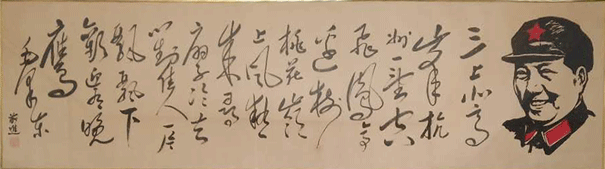 三上北高
峰杭
州一望空
飞凤亭
边树
桃花岭
上风热
来寻
扇子冷去
对佳人一片
飘飘下
欢迎有晚
鹰
毛泽东